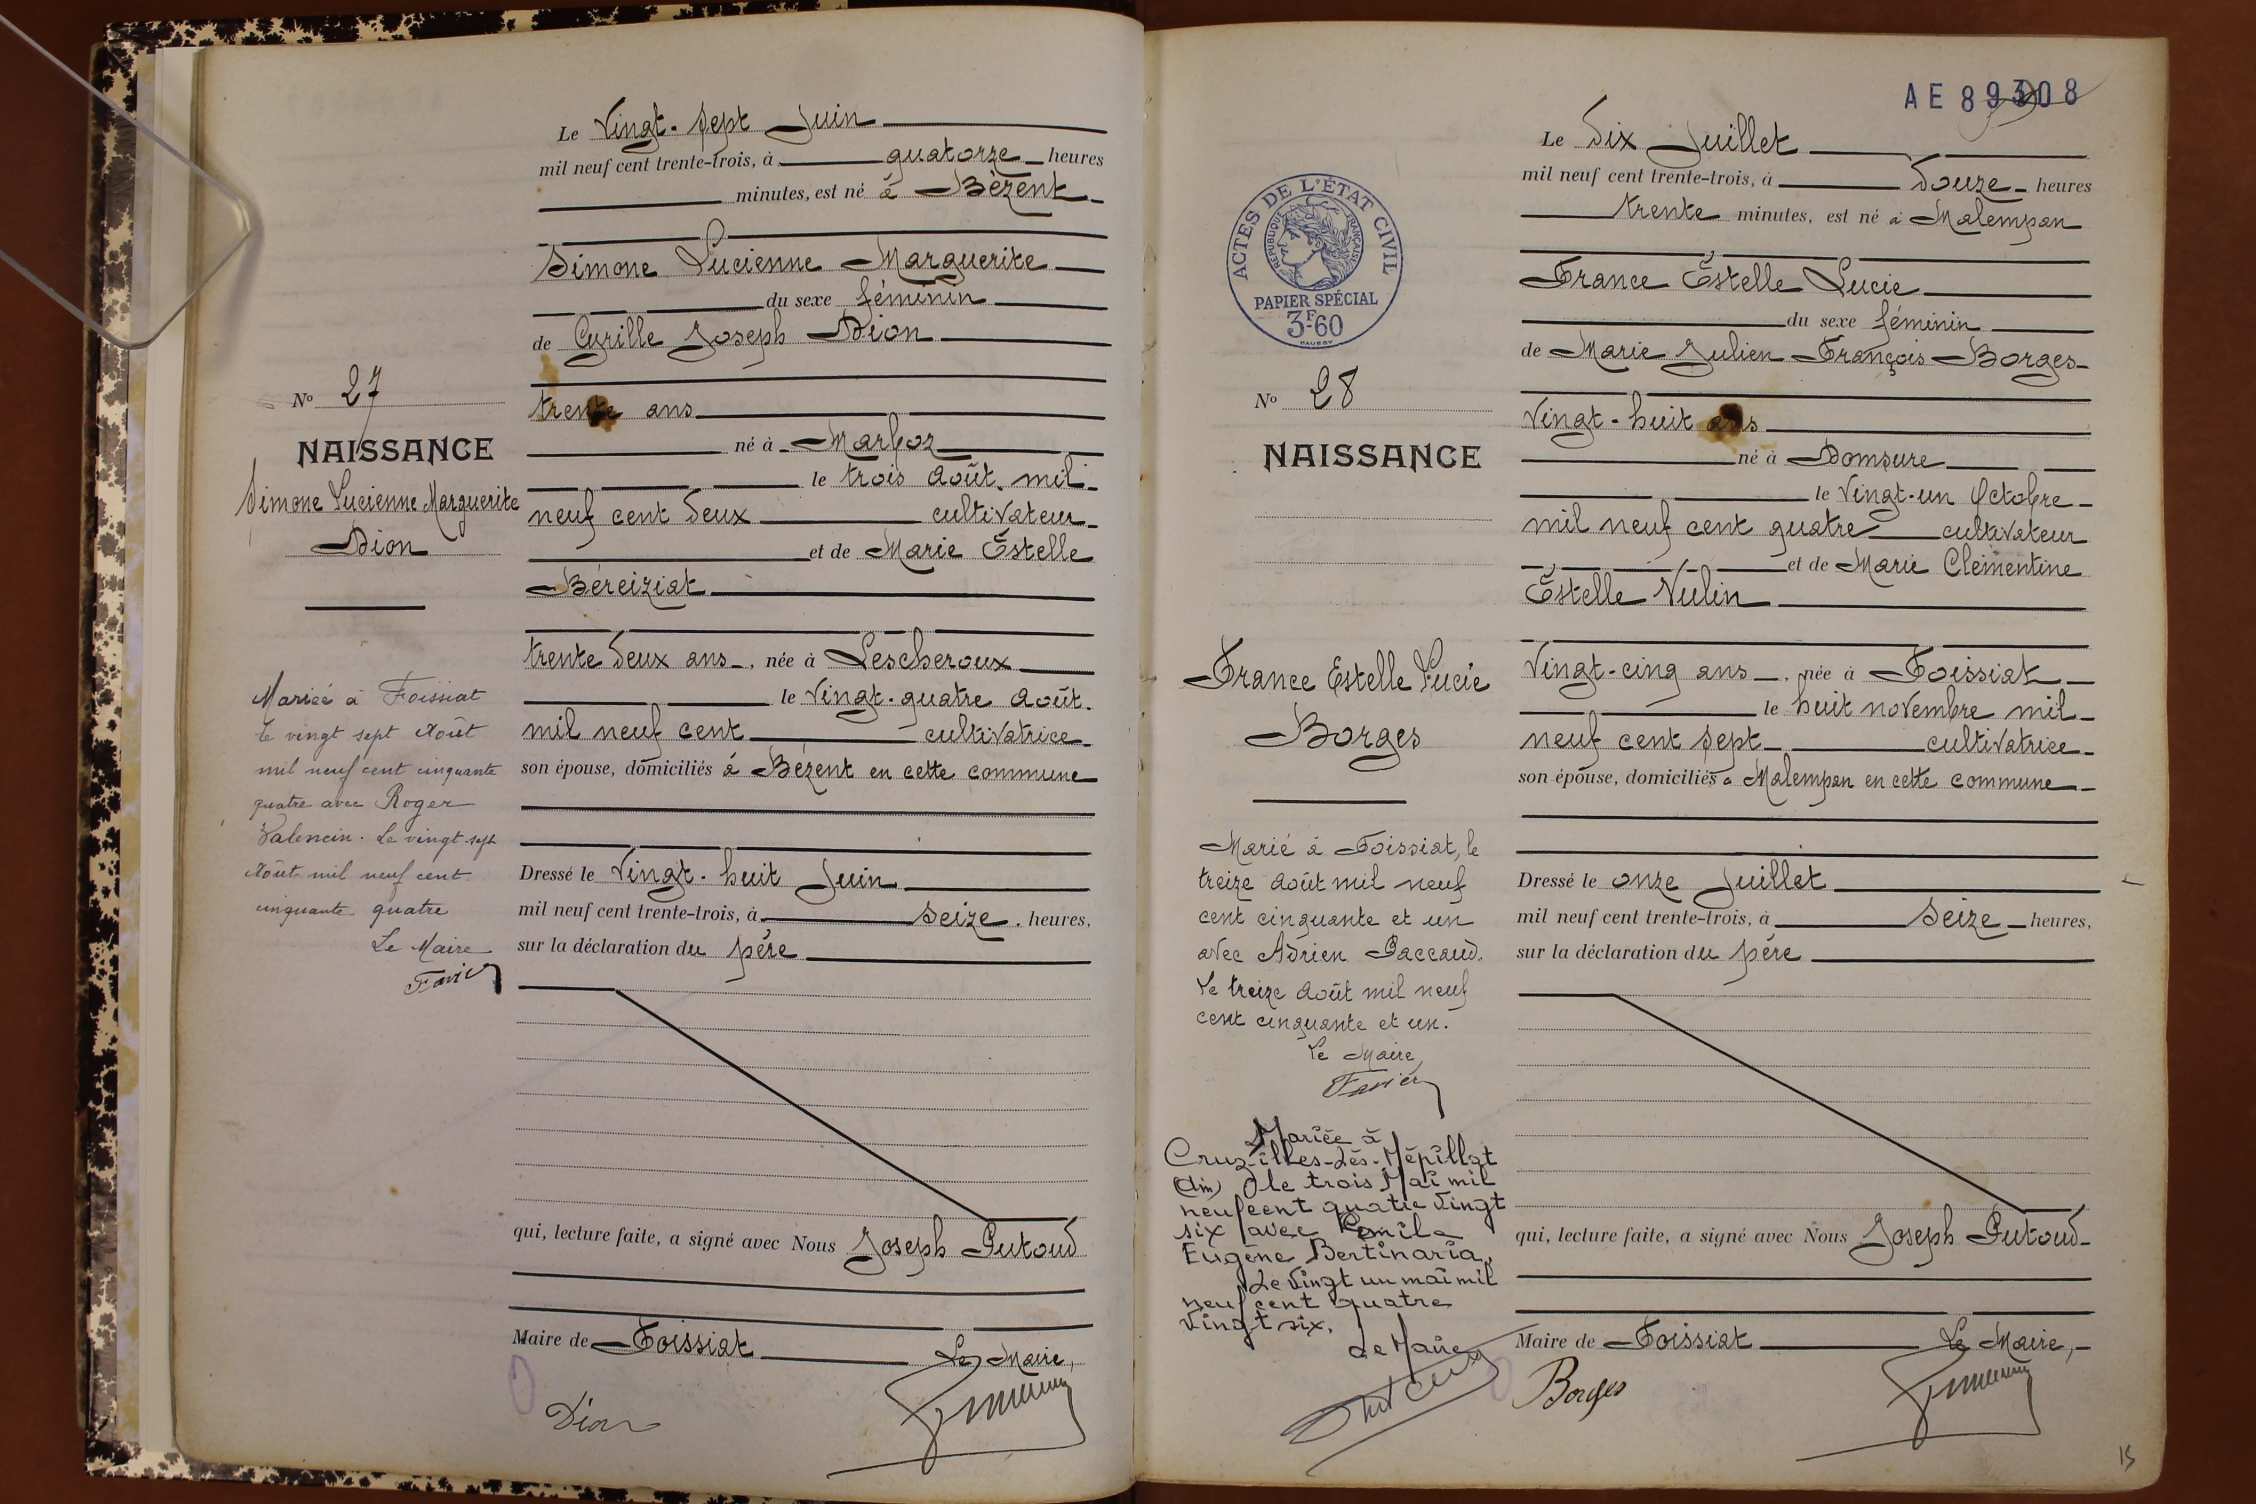 Le Vingt-sept Juin
mil neuf cent trente-trois, à quatorze heures
minutes, est né à Bézent
Simone Lucienne Marguerite
du sexe féminin
de Cyrille Joseph Dion
trente ans
né à Marboz
le trois Août mil
neuf cent deux cultivateur
et de Marie Estelle
Béreiziat
trente deux ans, née à Lescheroux
le Vingt-quatre Août
mil neuf cent cultivatrice
son épouse, domiciliés à Bézent en cette commune
Dressé le Vingt-huit Juin
mil neuf cent trente-trois, à seize heures,
sur la déclaration du père
qui, lecture faite, a signé avec Nous Joseph Putoud
Maire de Foissiat Le Maire,
Dion
No 27
NAISSANCE
Simone Lucienne Marguerite
Dion
Mariée à Foissiat
le vingt sept Août
mil neuf cent cinquante
quatre avec Roger
Valencin. Le vingt-sept
Août mil neuf cent
cinquante quatre
Le Maire
Favier
AE 89308
Le Six Juillet
mil neuf cent trente-trois, à Douze heures
trente minutes, est né à Malempan
France Estelle Lucie
du sexe féminin
de Marie Julien François Borges
Vingt-huit ans
né à Domsure
le Vingt-un Octobre
mil neuf cent quatre cultivateur
et de Marie Clémentine
Estelle Vulin
Vingt-cinq ans, née à Foissiat
le huit novembre mil
neuf cent sept cultivatrice
son épouse, domiciliés à Malempan en cette commune
Dressé le onze Juillet
mil neuf cent trente-trois, à seize heures,
sur la déclaration du père
qui, lecture faite, a signé avec Nous Joseph Putoud
Maire de Foissiat Le Maire,
Borges
ACTES DE L'ÉTAT CIVIL
RÉPUBLIQUE FRANÇAISE
PAPIER SPÉCIAL
3F-60
No 28
NAISSANCE
France Estelle Lucie
Borges
Marié à Foissiat, le
treize Août mil neuf
cent cinquante et un
avec Adrien Paccaud.
Le treize Août mil neuf
cent cinquante et un.
Le Maire
Favier
Mariée à
Cruzilles-Lès-Mépillat
(Ain) le trois Mai mil
neuf cent quatre vingt
six avec Emile
Eugène Bertinaria.
Le Vingt un mai mil
neuf cent quatre
vingt six.
Le Maire
15